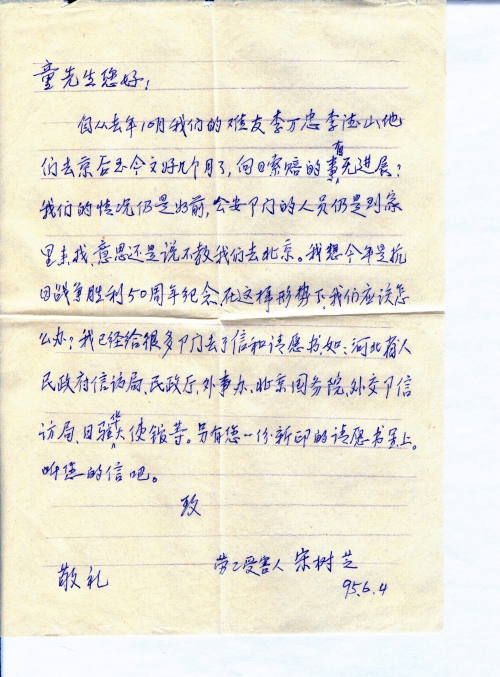 童先生您好：
自从去年10月我们的难友李万忠李德山他
们去京后至今又好几个月了，向日索赔的事有无进展？
我们的情况仍是如前，公安部门的人员仍是到家
里来找、意思还是说不教我们去北京。我想今年是抗
日战争胜利50周年纪念、在这样形势下、我们应该怎
么办？我已经给很多部门去了信和请愿书如：河北省人
民政府信访局、民政厅、外事办、北京国务院、外交部信
访局、日驻华大使馆等。另有您一份新印的请愿书呈上。
听您的信吧。
致
敬礼
劳工受害人 宋树芝
95.6.4